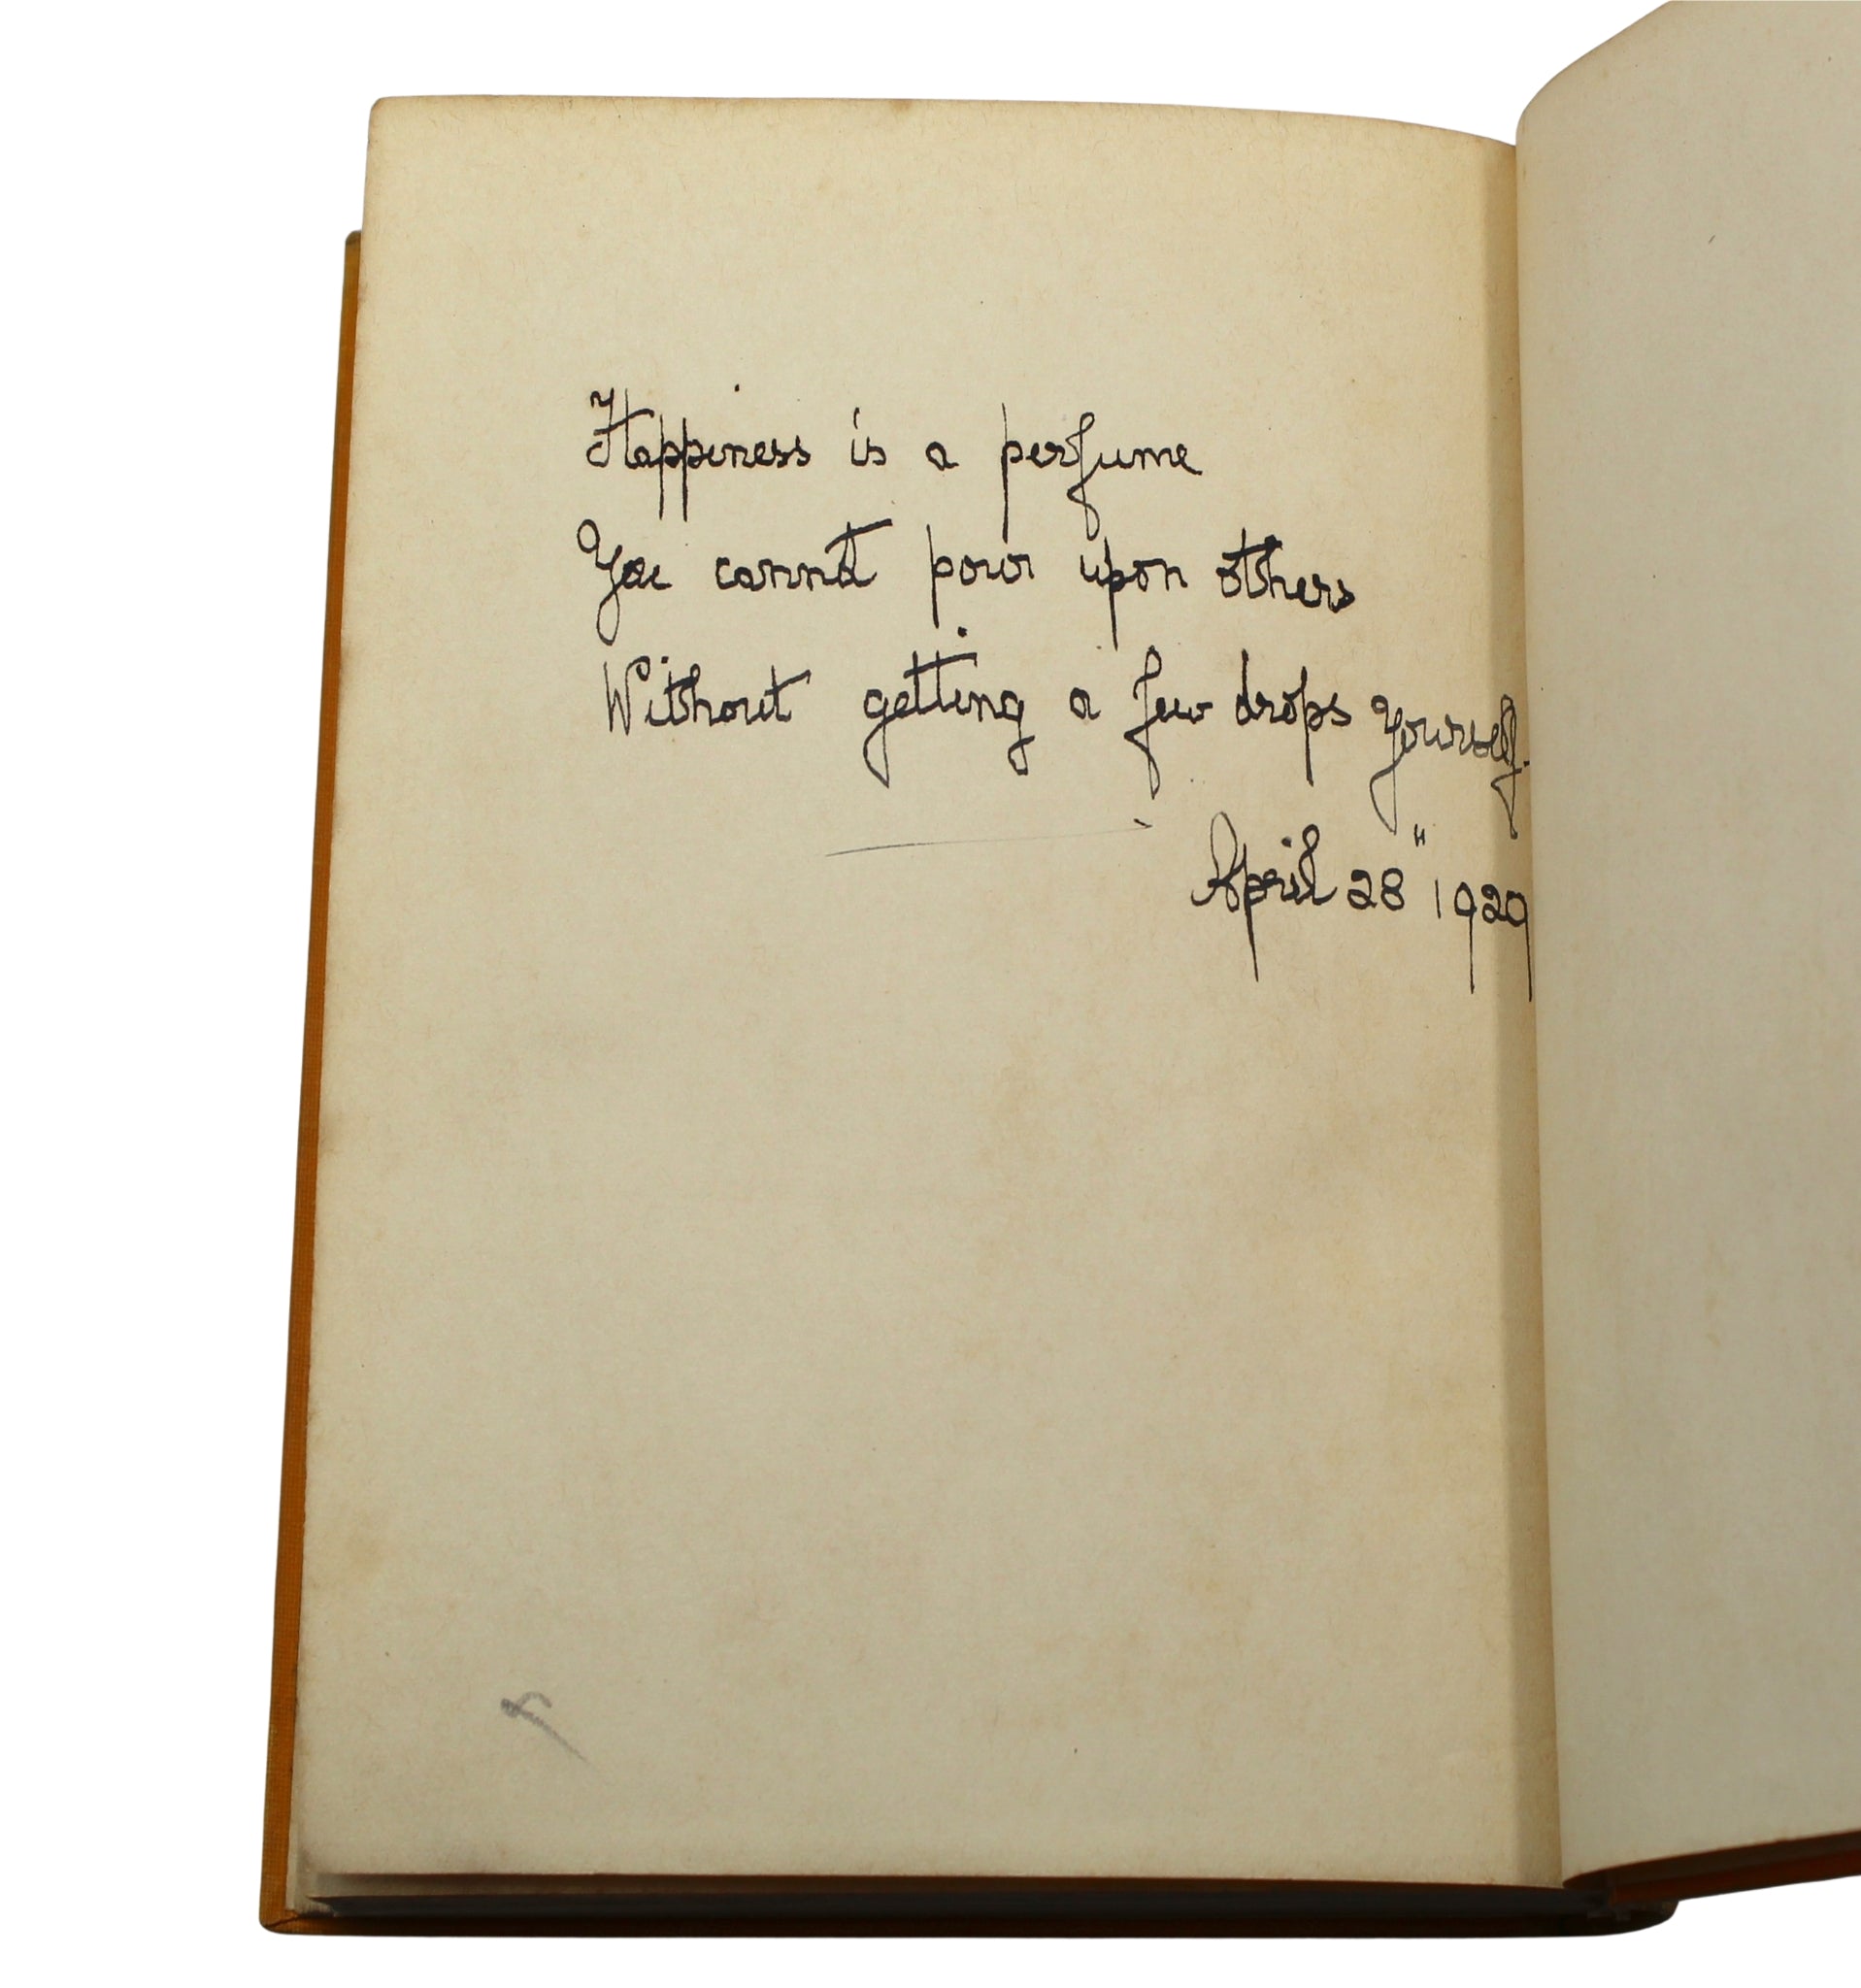 Happiness is a perfume
You cannot pour upon others
Without getting a few drops yourself.
April 28" 1929